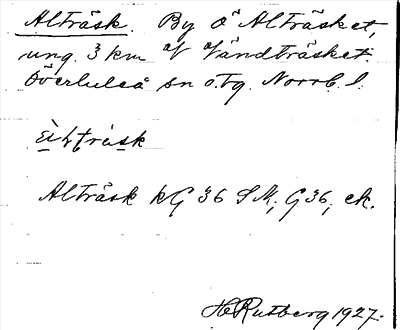 Alträsk. By Ö Alträsket,
ung. 3 km V Vändträsket.
Överluleå sn o. tg. Norrb. l.
Alträsk kG 36 SK; G36; ek.
H Rutberg 1927.